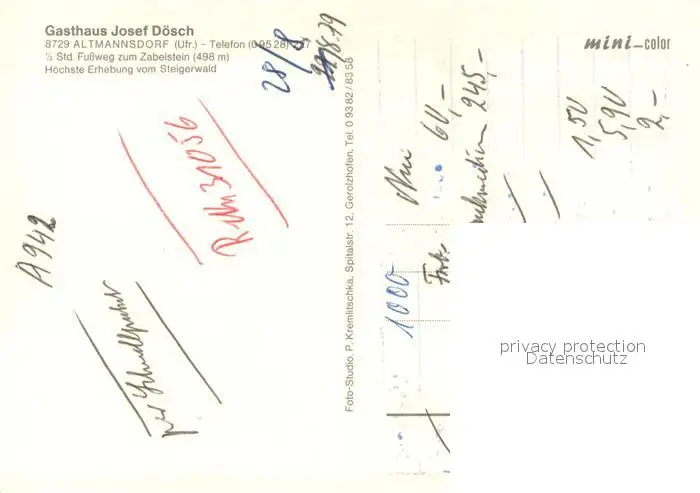 Gasthaus Josef Dösch
8729 ALTMANNSDORF (Ufr.) – Telefon (0 95 28) 237
½ Std. Fußweg zum Zabelstein (498 m)
Höchste Erhebung vom Steigerwald
28/8
8.79
mini-color
Foto-Studio. P. Kremlitschka, Spitalstr. 12, Gerolzhofen, Tel. 0 93 82 / 83 58
A942
per Schnellpaket
60,–
245,–
1,50
5,90
2,–
1000
privacy protection
Datenschutz